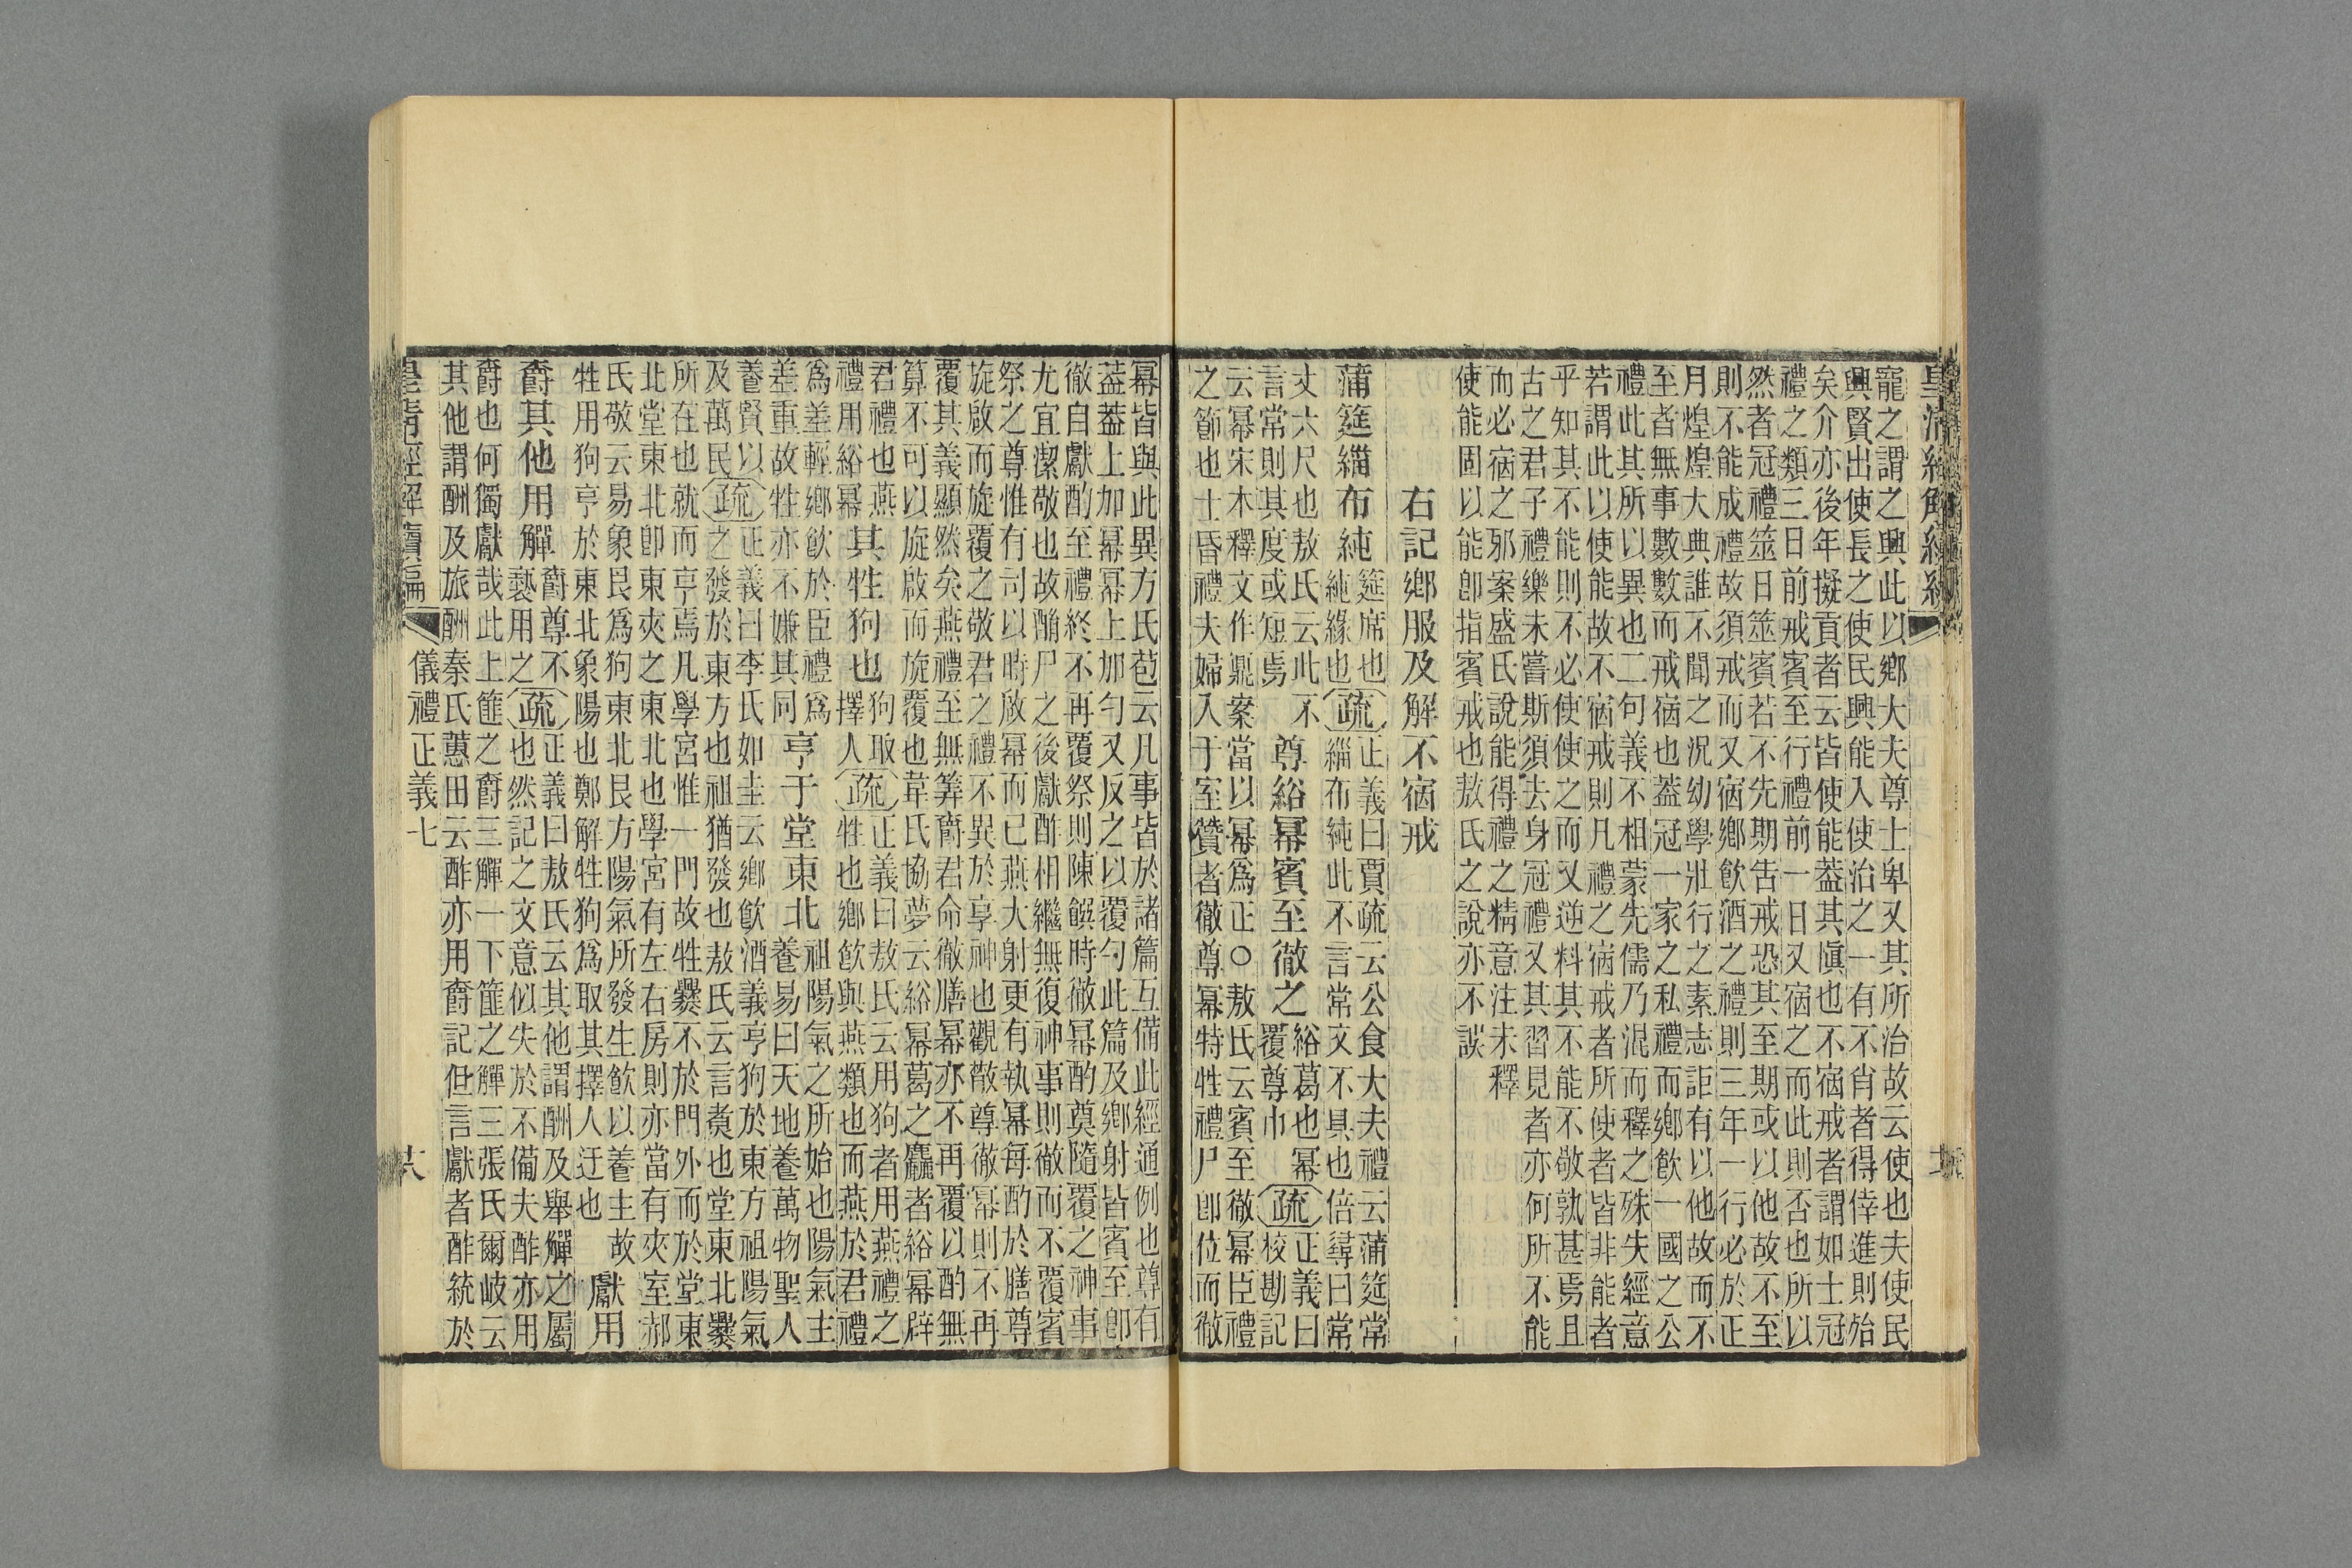 寵之謂之興此以鄉大夫尊士卑又其所治故云使也夫使民
興賢出使長之使民興能入使治之一有不肖者得倖進則殆
矣介亦後年擬貢者云皆使能葢其愼也不宿戒者謂如士冠
禮之類三日前戒賓至行禮前一日又宿之而此則否也所以
然者冠禮筮日筮賓若不先期吿戒恐其至期或以他故不至
則不能成禮故須戒而又宿鄉飮酒之禮則三年一行必於正
月煌煌大典誰不聞之况幼學壯行之素志詎有以他故而不
至者無事數數而戒宿也葢冠一家之私禮而鄉飮一國之公
禮此其所以異也二句義不相蒙先儒乃混而釋之殊失經意
若謂此以使能故不宿戒則凡禮之宿戒者所使者皆非能者
乎知其不能則不必使使之而又逆料其不能不敬孰甚焉且
古之君子禮樂未嘗斯須去身冠禮又其習見者亦何所不能
而必宿之邪案盛氏說能得禮之精意注未釋
使能固以能卽指賓戒也敖氏之說亦不誤
右記鄉服及解不宿戒
蒲筵緇布純
筵席也
純緣也
疏
正義曰賈疏云公食大夫禮云蒲筵常
緇布純此不言常文不具也倍尋曰常
丈六尺也敖氏云此不
言常則其度或短焉
尊綌冪賓至徹之
綌葛也冪
覆尊巾
疏
正義曰
校勘記
云冪宋木釋文作鼏案當以冪爲正○敖氏云賓至徹冪臣禮
之節也士昏禮夫婦入于室贊者徹尊冪特牲禮尸卽位而徹
冪皆與此異方氏苞云凡事皆於諸篇互備此經通例也尊有
葢葢上加冪冪上加勺又反之以覆勺此篇及鄉射皆賓至卽
徹自獻酌至禮終不再覆祭則陳饌時徹冪酌奠隨覆之神事
尤宜潔敬也故酳尸之後獻酢相繼無復神事則徹而不覆賓
祭之尊惟有司以時啟冪而已燕大射更有執冪每酌於膳尊
旋啟而旋覆之敬君之禮不異於享神也觀散尊徹冪則不再
覆其義顯然矣燕禮至無筭爵君命徹膳冪亦不再覆以酌無
算不可以旋啟而旋覆也韋氏協夢云綌冪葛之麤者綌冪辟
君禮也燕
禮用綌冪
其牲狗也
狗取
擇人
疏
正義曰敖氏云用狗者用燕禮之
牲也鄉飮與燕類也而燕於君禮
爲差輕鄉飮於臣禮爲
差重故牲亦不嫌其同
亨于堂東北
祖陽氣之所始也陽氣主
養易曰天地養萬物聖人
養賢以
及萬民
疏
正義曰李氏如圭云鄉飮酒義亨狗於東方祖陽氣
之發於東方也祖猶發也敖氏云言爂也堂東北爨
所在也就而亨焉凡學宮惟一門故牲爨不於門外而於堂東
北堂東北卽東夾之東北也學宮有左右房則亦當有夾室郝
氏敬云易象艮爲狗東北艮方陽氣所發生飮以養主故
牲用狗亨於東北象陽也鄭解牲狗爲取其擇人迂也
獻用
爵其他用觶
爵尊不
褻用之
疏
正義曰敖氏云其他謂酬及舉觶之屬
也然記之文意似失於不備夫酢亦用
爵也何獨獻哉此上篚之爵三觶一下篚之觶三張氏爾岐云
其他謂酬及旅酬秦氏蕙田云酢亦用爵記但言獻者酢統於
儀禮正義七